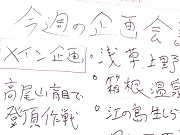 今週の企画会
メイン企画
高尾山有目で
登頂作戦
・浅草上野
・箱根温泉
・江の島生しら